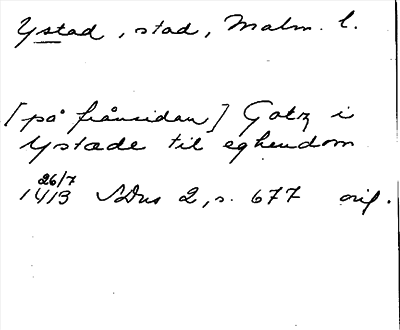 Ystad, stad, Malm. l.
[på frånsidan] Gotz i
Ystæde til eghendom
26/7
1413 SDns 2, s. 677 orig.